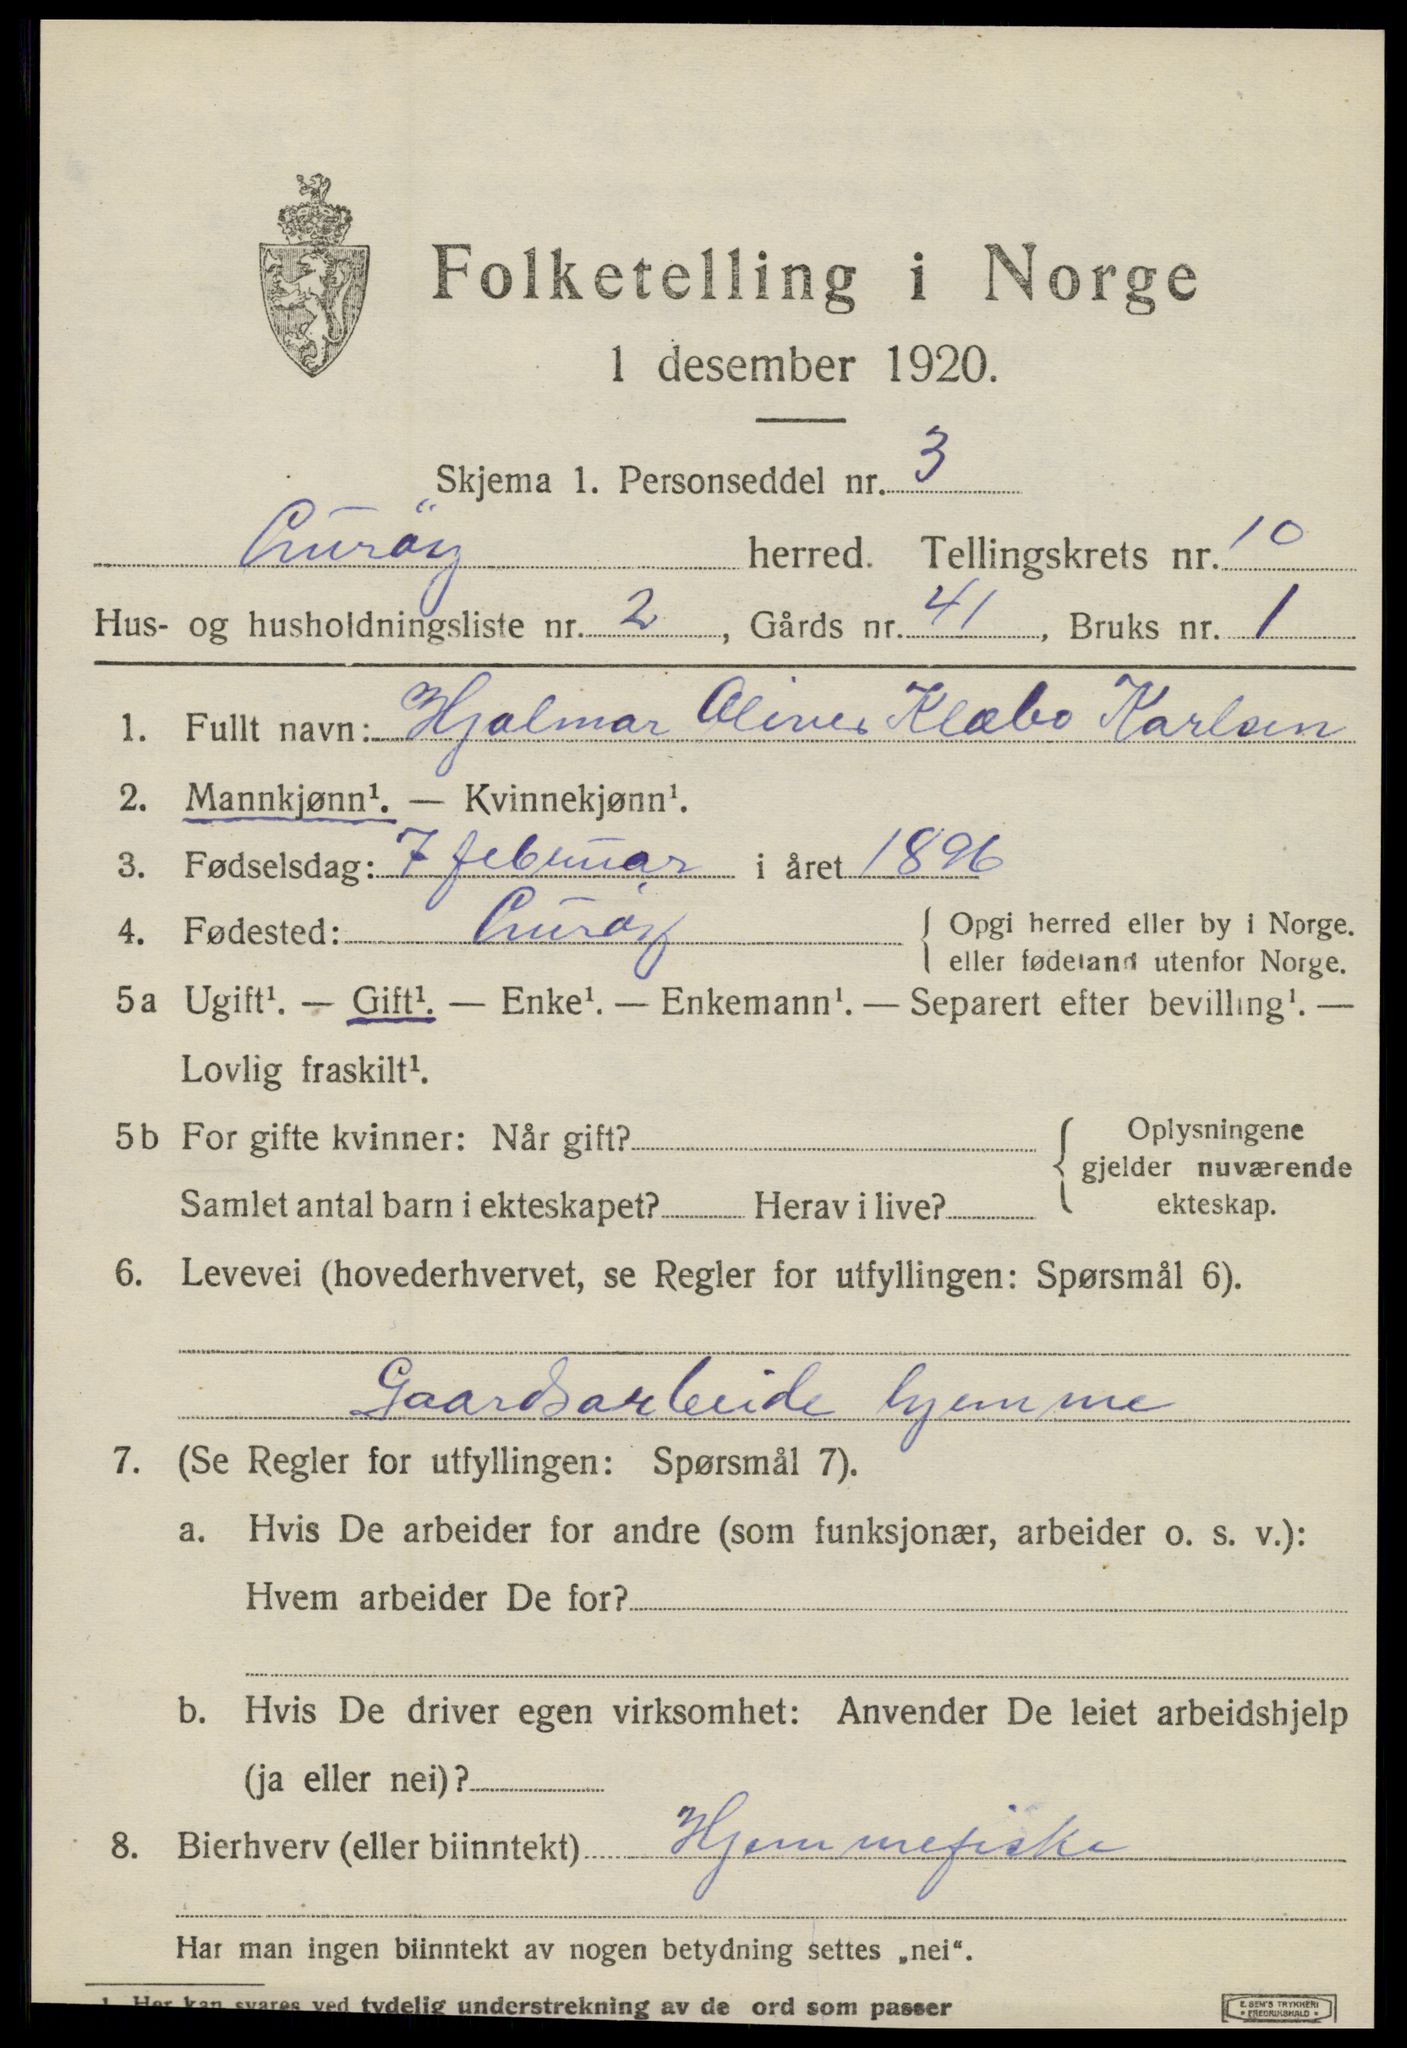 Folketelling i Norge
1 desember 1920.
Skjema 1. Personseddel nr. 3
Lurøy herred. Tellingskrets nr. 10
Hus- og husholdningsliste nr. 2, Gårds nr. 41, Bruks nr. 1
1. Fullt navn: Hjalmar Oliver Klæbo Karlsen
2. Mannkjønn¹. — Kvinnekjønn¹.
3. Fødselsdag: 7 februar i året 1896
4. Fødested: Lurøy { Opgi herred eller by i Norge.
eller fødeland utenfor Norge.
5a Ugift¹. — Gift¹. — Enke¹. — Enkemann¹. — Separert efter bevilling¹. —
Lovlig fraskilt¹.
5b For gifte kvinner: Når gift? { Oplysningene
gjelder nuværende
Samlet antal barn i ekteskapet? Herav i live? ekteskap.
6. Levevei (hovederhvervet, se Regler for utfyllingen: Spørsmål 6).
Gaardsarbeide hjemme
7. (Se Regler for utfyllingen: Spørsmål 7).
a. Hvis De arbeider for andre (som funksjonær, arbeider o. s. v.):
Hvem arbeider De for?
b. Hvis De driver egen virksomhet: Anvender De leiet arbeidshjelp
(ja eller nei)?
8. Bierhverv (eller biinntekt) Hjemmefiske
Har man ingen biinntekt av nogen betydning settes „nei“.
1 Her kan svares ved tydelig understrekning av de ord som passer
E. SEM'S TRYKKERI
• FREDRIKSHALD •